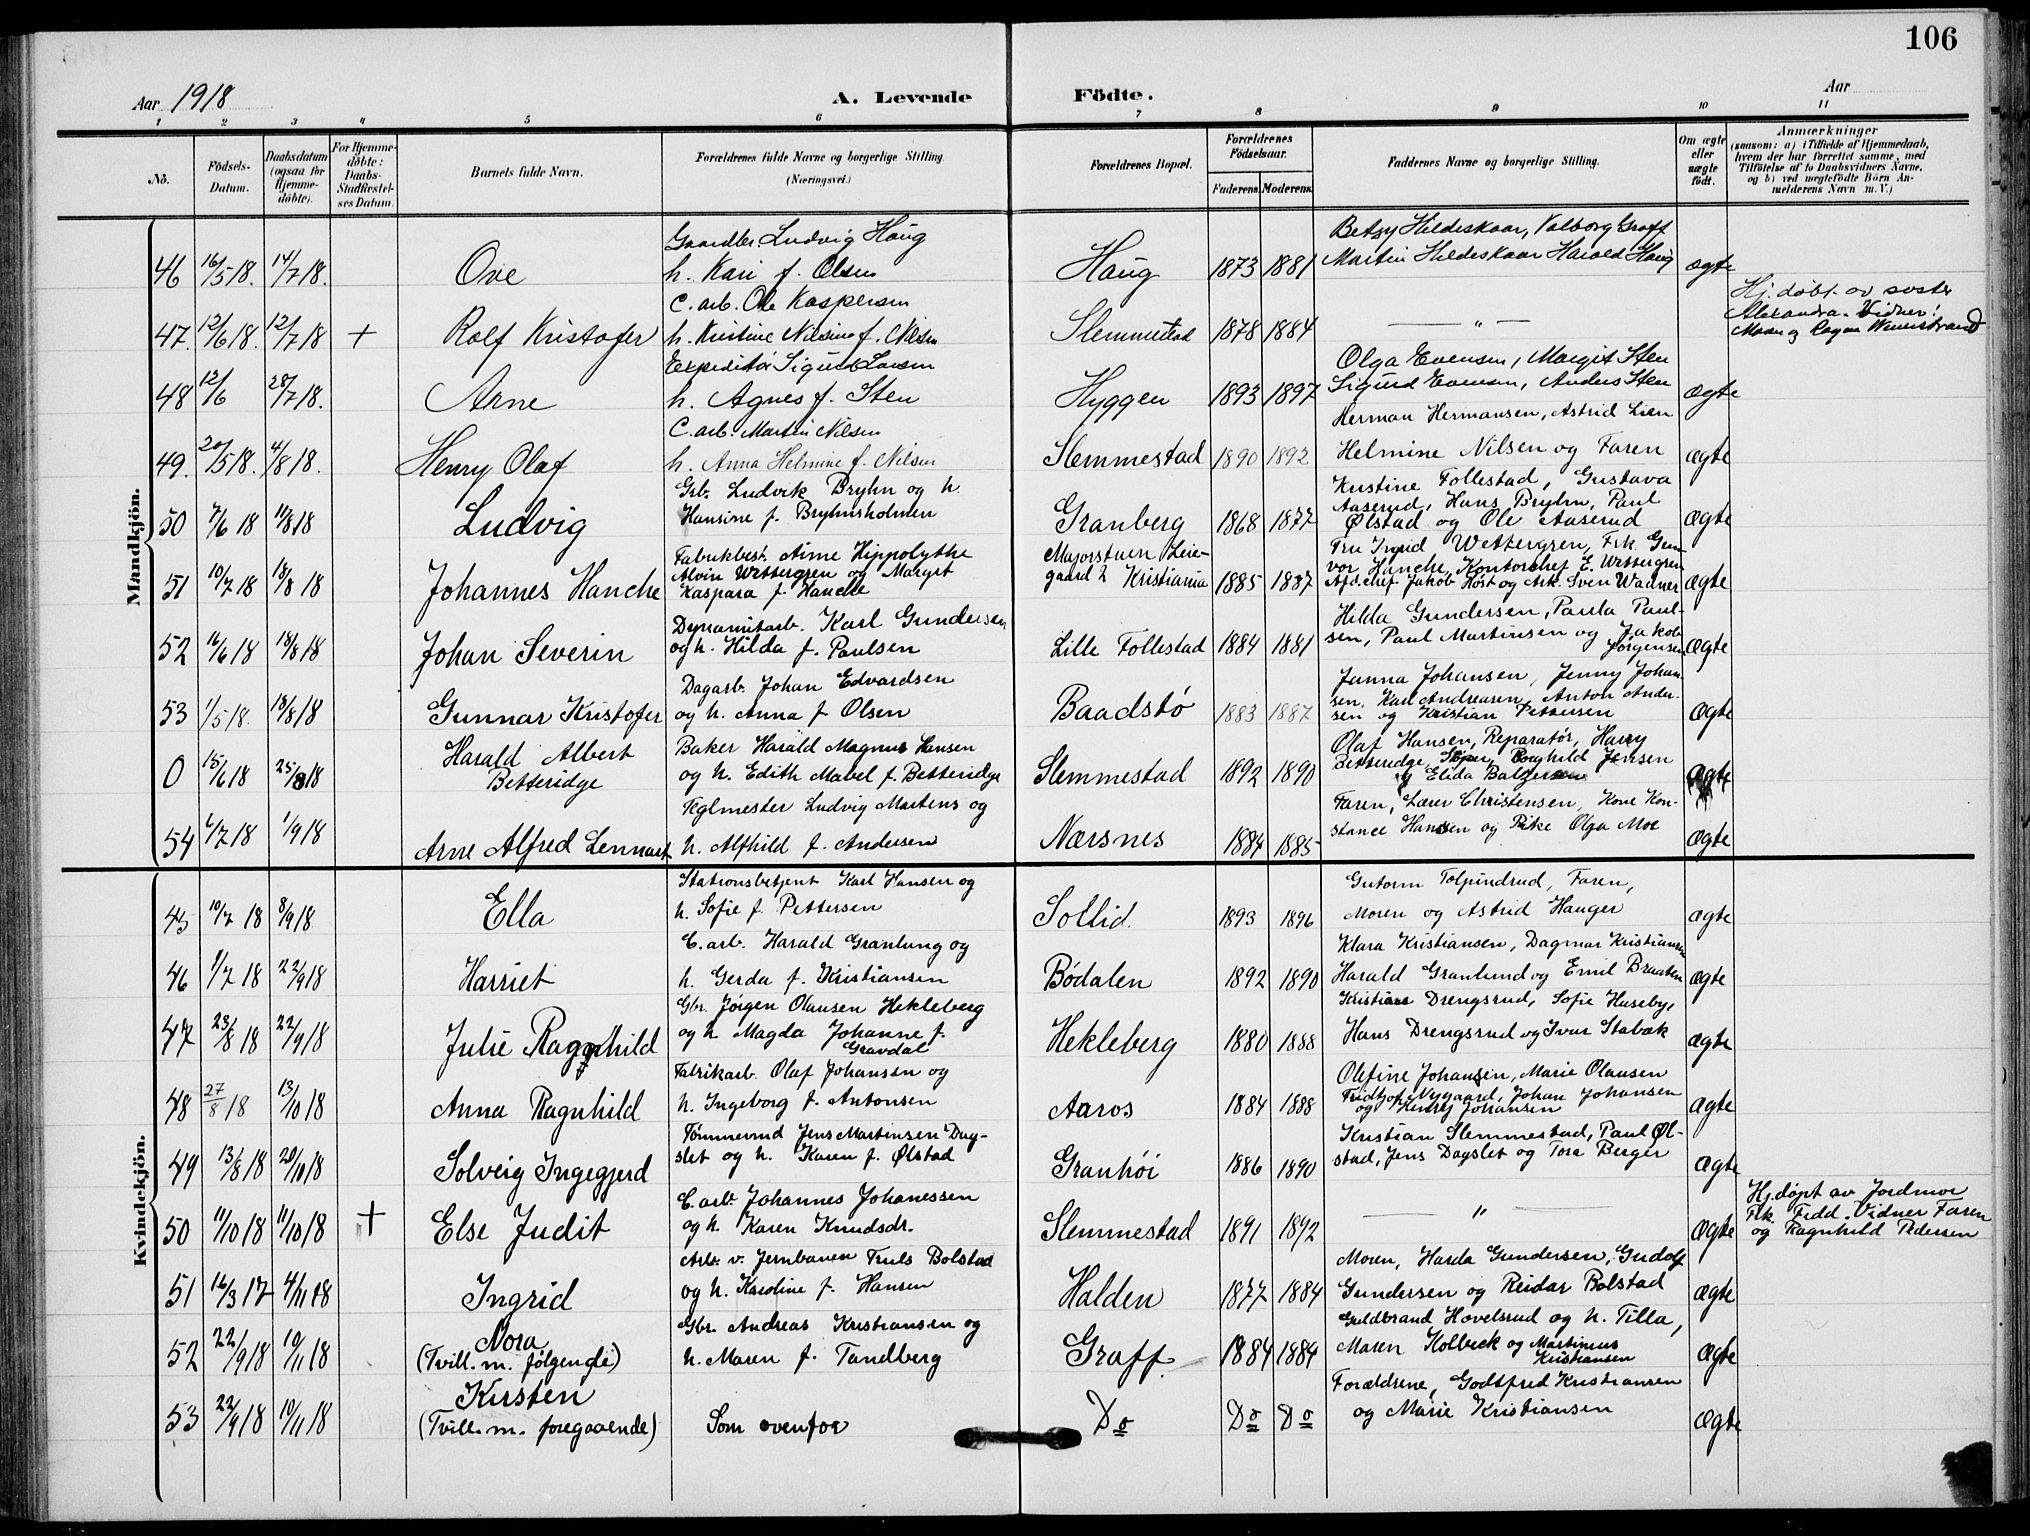 106
Aar 1918
A. Levende
Födte.
Aar
1 2 3 4 5 6 7 8 9 10 11
No.
Födsels-Datum.
Daabsdatum (ogsaa for Hjemme-döbte).
For Hjemme-döbte: Daabs-Stadfæstel-ses Datum.
Barnets fulde Navn.
Forældrenes fulde Navne og borgerlige Stilling (Næringsvei.)
Forældrenes Bopæl.
Forældrenes Födselsaar.
Faderens. Moderens.
Faddernes Navne og borgerlige Stilling.
Om ægte eller uægte födt.
Anmærkninger
(saasom: a) i Tilfælde af Hjemmedaab, hvem der har forrettet samme, med Tilföielse af to Daabsvidners Navne, og b) ved uægtefödte Börn An-melderens Navn m. V.)
Mandkjön.
Gaardbr. Ludvig Haug
Betzy Hildeskaar, Valborg Graff
46 16/5 18. 14/7 18. Ove h. Kari f. Olsen Haug 1873 1881 Martin Hildeskaar Harald Haug ægte
C. arb. Ole Kaspersen
Hj. døbt av søster
Alexandra. Vidner:
47. 12/6 18. 12/7 18 + Rolf Kristofer h. Kristine Nilsine f. Nilsen Slemmestad 1878 1884 — " —
Moren og Ragna
Expeditør Sigurd
Olga Evensen, Margit Sten
48 12/6 28/7 18. Arne h. Agnes f. Sten Hyggen 1893 1897 Sigurd Evensen, Anders Sten ægte
C. arb. Martin Nilsen
Herman Hermansen, Astrid Lien
49. 20/5 18. 4/8 18. Henry Olaf h. Anna Helmine f. Nilsen Slemmestad 1890 1892 Helmine Nilsen og Faren ægte
Grb. Ludvik Bryhn og h.
Kristine Follestad, Gustava
Aaserud, Hans Bryhn, Paul
50 7/6 18 11/8 18 Ludvig Hansine f. Bryhnsholmen Granberg 1868 1877 Ølstad og Ole Aaserud ægte
Fabrikbest. Arne Hippolythe
Majorstuen Leie-
Fru Ingrid Wettergren, Frk. Gun-
Alvin Wettergren og Margit
vor Hanche, Kontorchef E. Wettergren
51 10/7 18 18/8 18 Johannes Hanche Kaspara f. Hanche gaard 2 Kristiania 1885 1887 Afd.chef Jakob Høst og Ark. Sven ægte
Dynamitarb. Karl Gundersen
Hilda Gundersen, Paula Paul-
52 16/6 18 18/8 18 Johan Severin og h. Hilda f. Paulsen Lille Follestad 1884 1881 sen, Paul Martinsen og Jakob Jørgensen ægte
Dagarb. Johan Edvardsen
Janna Johansen, Jenny Johan-
sen, Karl Andreasen, Anton Ander-
53 1/5 18. 18/8 18 Gunnar Kristofer og h. Anna f. Olsen Baadstø 1883 1887 sen og Kristian Pettersen ægte
Harald Albert
Baker Harald Magnus Hansen
Olaf Hansen, Reparatør, Harry
Betteridge, Ragnhild Jensen
0 15/6 18 25/8 18 Betteridge og h. Edith Mabel f. Betteridge Slemmestad 1892 1890 og Elida Balzersen ægte
Teglmester Ludvig Martens og
Faren, Lærer Christensen, Kone Kon-
54 6/7 18 1/9 18 Arne Alfred Lennart h. Alfhild f. Andersen Nærsnes 1884 1885 stance Hansen og Pike Olga Moe ægte
Kvindekjön.
Stationsbetjent Karl Hansen og
Gutorm Tolpinrud, Faren,
45 10/7 18 8/9 18 Ella h. Sofie f. Pettersen Sollid. 1893 1896 Moren og Astrid Hauger ægte
C. arb. Harald Granlung og
Klara Kristiansen, Dagmar Kristiansen
46 1/7 18 22/9 18 Harriet h. Gerda f. Kristiansen Bødalen 1892 1890 Harald Granlund og Emil Braaten ægte
Gbr. Jørgen Olausen Hekleberg
Kristiane Drengsrud, Sofie Huseby,
47 23/8 18 22/9 18 Julie Ragnhild og h Magda Johanne f. Gravdal Hekleberg 1880 1888 Hans Drengsrud og Ivar Stabæk ægte
Fabrikarb. Olaf Johansen og
Olefine Johansen, Marie Olausen
Fridtjof Nygaard, Johan Johansen
48 27/8 18 13/10 18 Anna Ragnhild h. Ingeborg f. Antonsen Aaros 1884 1888 og Henry Johansen ægte
Tømmermd Jens Martinsen Dag-
Kristian Slemmestad, Paul Øl-
49 13/8 18 20/10 18 Solveig Ingegjerd slet og h. Karen f. Ølstad Granhøi 1886 1890 stad, Jens Dagslet og Tora Berger ægte
C. arb. Johannes Johanessen
Hj. døpt av Jordmor
Frk. Fedd. Vidner Faren
50 11/10 18 11/10 18 + Else Judit og h. Karen Knudsdr. Slemmestad 1891 1892 — " — ægte og Ragnhild Pedersen
Arb. v. Jernbanen Truls Bolstad
Moren, Harda Gundersen, Gudolf
51 16/3 17 4/11 18 Ingrid og h. Karoline f. Hansen Halden 1877 1884 Gundersen og Reidar Bolstad ægte
Nora
Gbr. Andreas Kristiansen og
Guldbrand Hovelsrud og h. Tilla,
52 22/9 18 10/11 18 (Tvill. m. følgende) h. Maren f. Tandberg Graff 1884 1884 Maren Kolbeck og Martinius Kristiansen ægte
Kirsten
Forældrene, Godtfred Kristiansen
53 22/9 18 10/11 18 (Tvill. m. foregaaende) Som ovenfor Do Do Do og Marie Kristiansen ægte